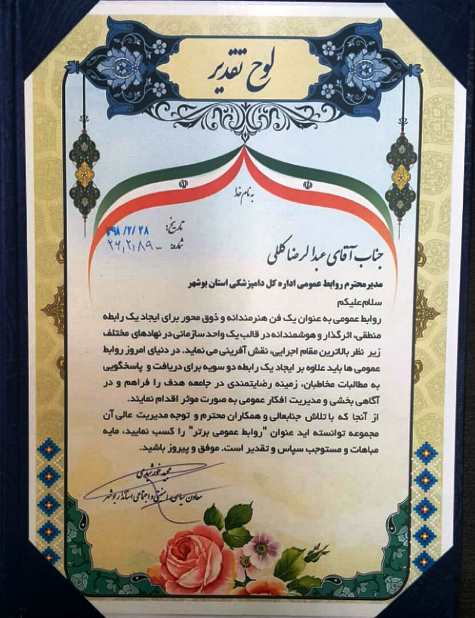 لوح تقدیر
به نام خدا
تاریخ: ۳۹۸/۲/۲۸
شماره: ۲۶,۲,۸۹ـ
جناب آقای عبدالرضا کلملی
مدیر محترم روابط عمومی اداره کل دامپزشکی استان بوشهر
سلام علیکم
روابط عمومی به عنوان یک فن هنرمندانه و ذوق محور برای ایجاد یک رابطه
منطقی، اثرگذار و هوشمندانه در قالب یک واحد سازمانی در نهادهای مختلف
زیر نظر بالاترین مقام اجرایی، نقش آفرینی می نماید. در دنیای امروز روابط
عمومی ها باید علاوه بر ایجاد یک رابطه دو سویه برای دریافت و پاسخگویی
به مطالبات مخاطبان، زمینه رضایتمندی در جامعه هدف را فراهم و در
آگاهی بخشی و مدیریت افکار عمومی به صورت موثر اقدام نمایند.
از آنجا که با تلاش جنابعالی و همکاران محترم و توجه مدیریت عالی آن
مجموعه توانسته اید عنوان "روابط عمومی برتر" را کسب نمایید، مایه
مباهات و مستوجب سپاس و تقدیر است. موفق و پیروز باشید.
معاون سیاسی، امنیتی و اجتماعی استاندار بوشهر